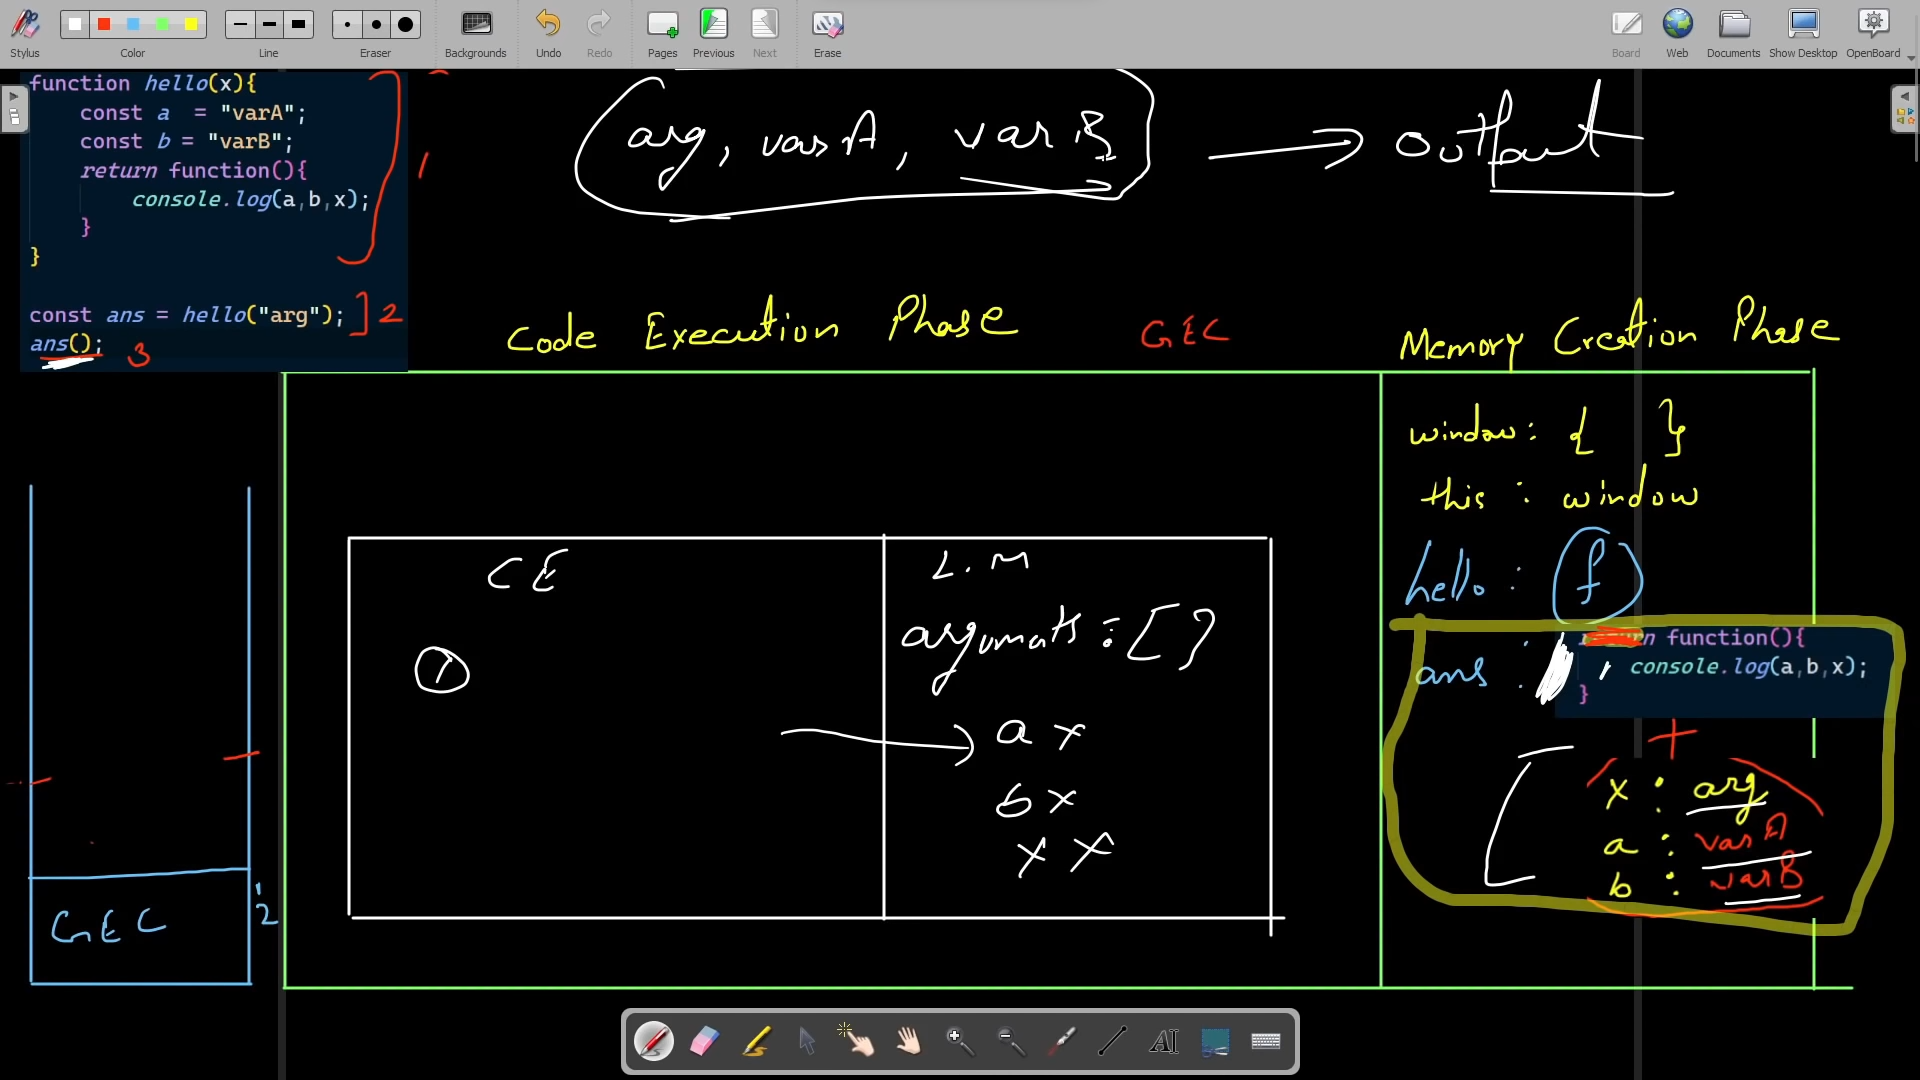 Stylus
Color
Line
Eraser
Backgrounds
Undo
Redo
Pages
Previous
Next
Erase
Board
Web
Documents
Show Desktop
OpenBoard
function hello(x){
const a = "varA";
const b = "varB";
return function(){
console.log(a,b,x);
}
}
const ans = hello("arg"); ] 2
ans(); 3
1
arg, varA, varB → output
Code Execution Phase
GEC
Memory Creation Phase
window: { }
this : window
hello : f
ans :
function(){
console.log(a,b,x);
}
+
x : arg
a : varA
b : varB
CE
1
L.M
arguments : [ ]
a x
b x
x x
GEC
2
AI